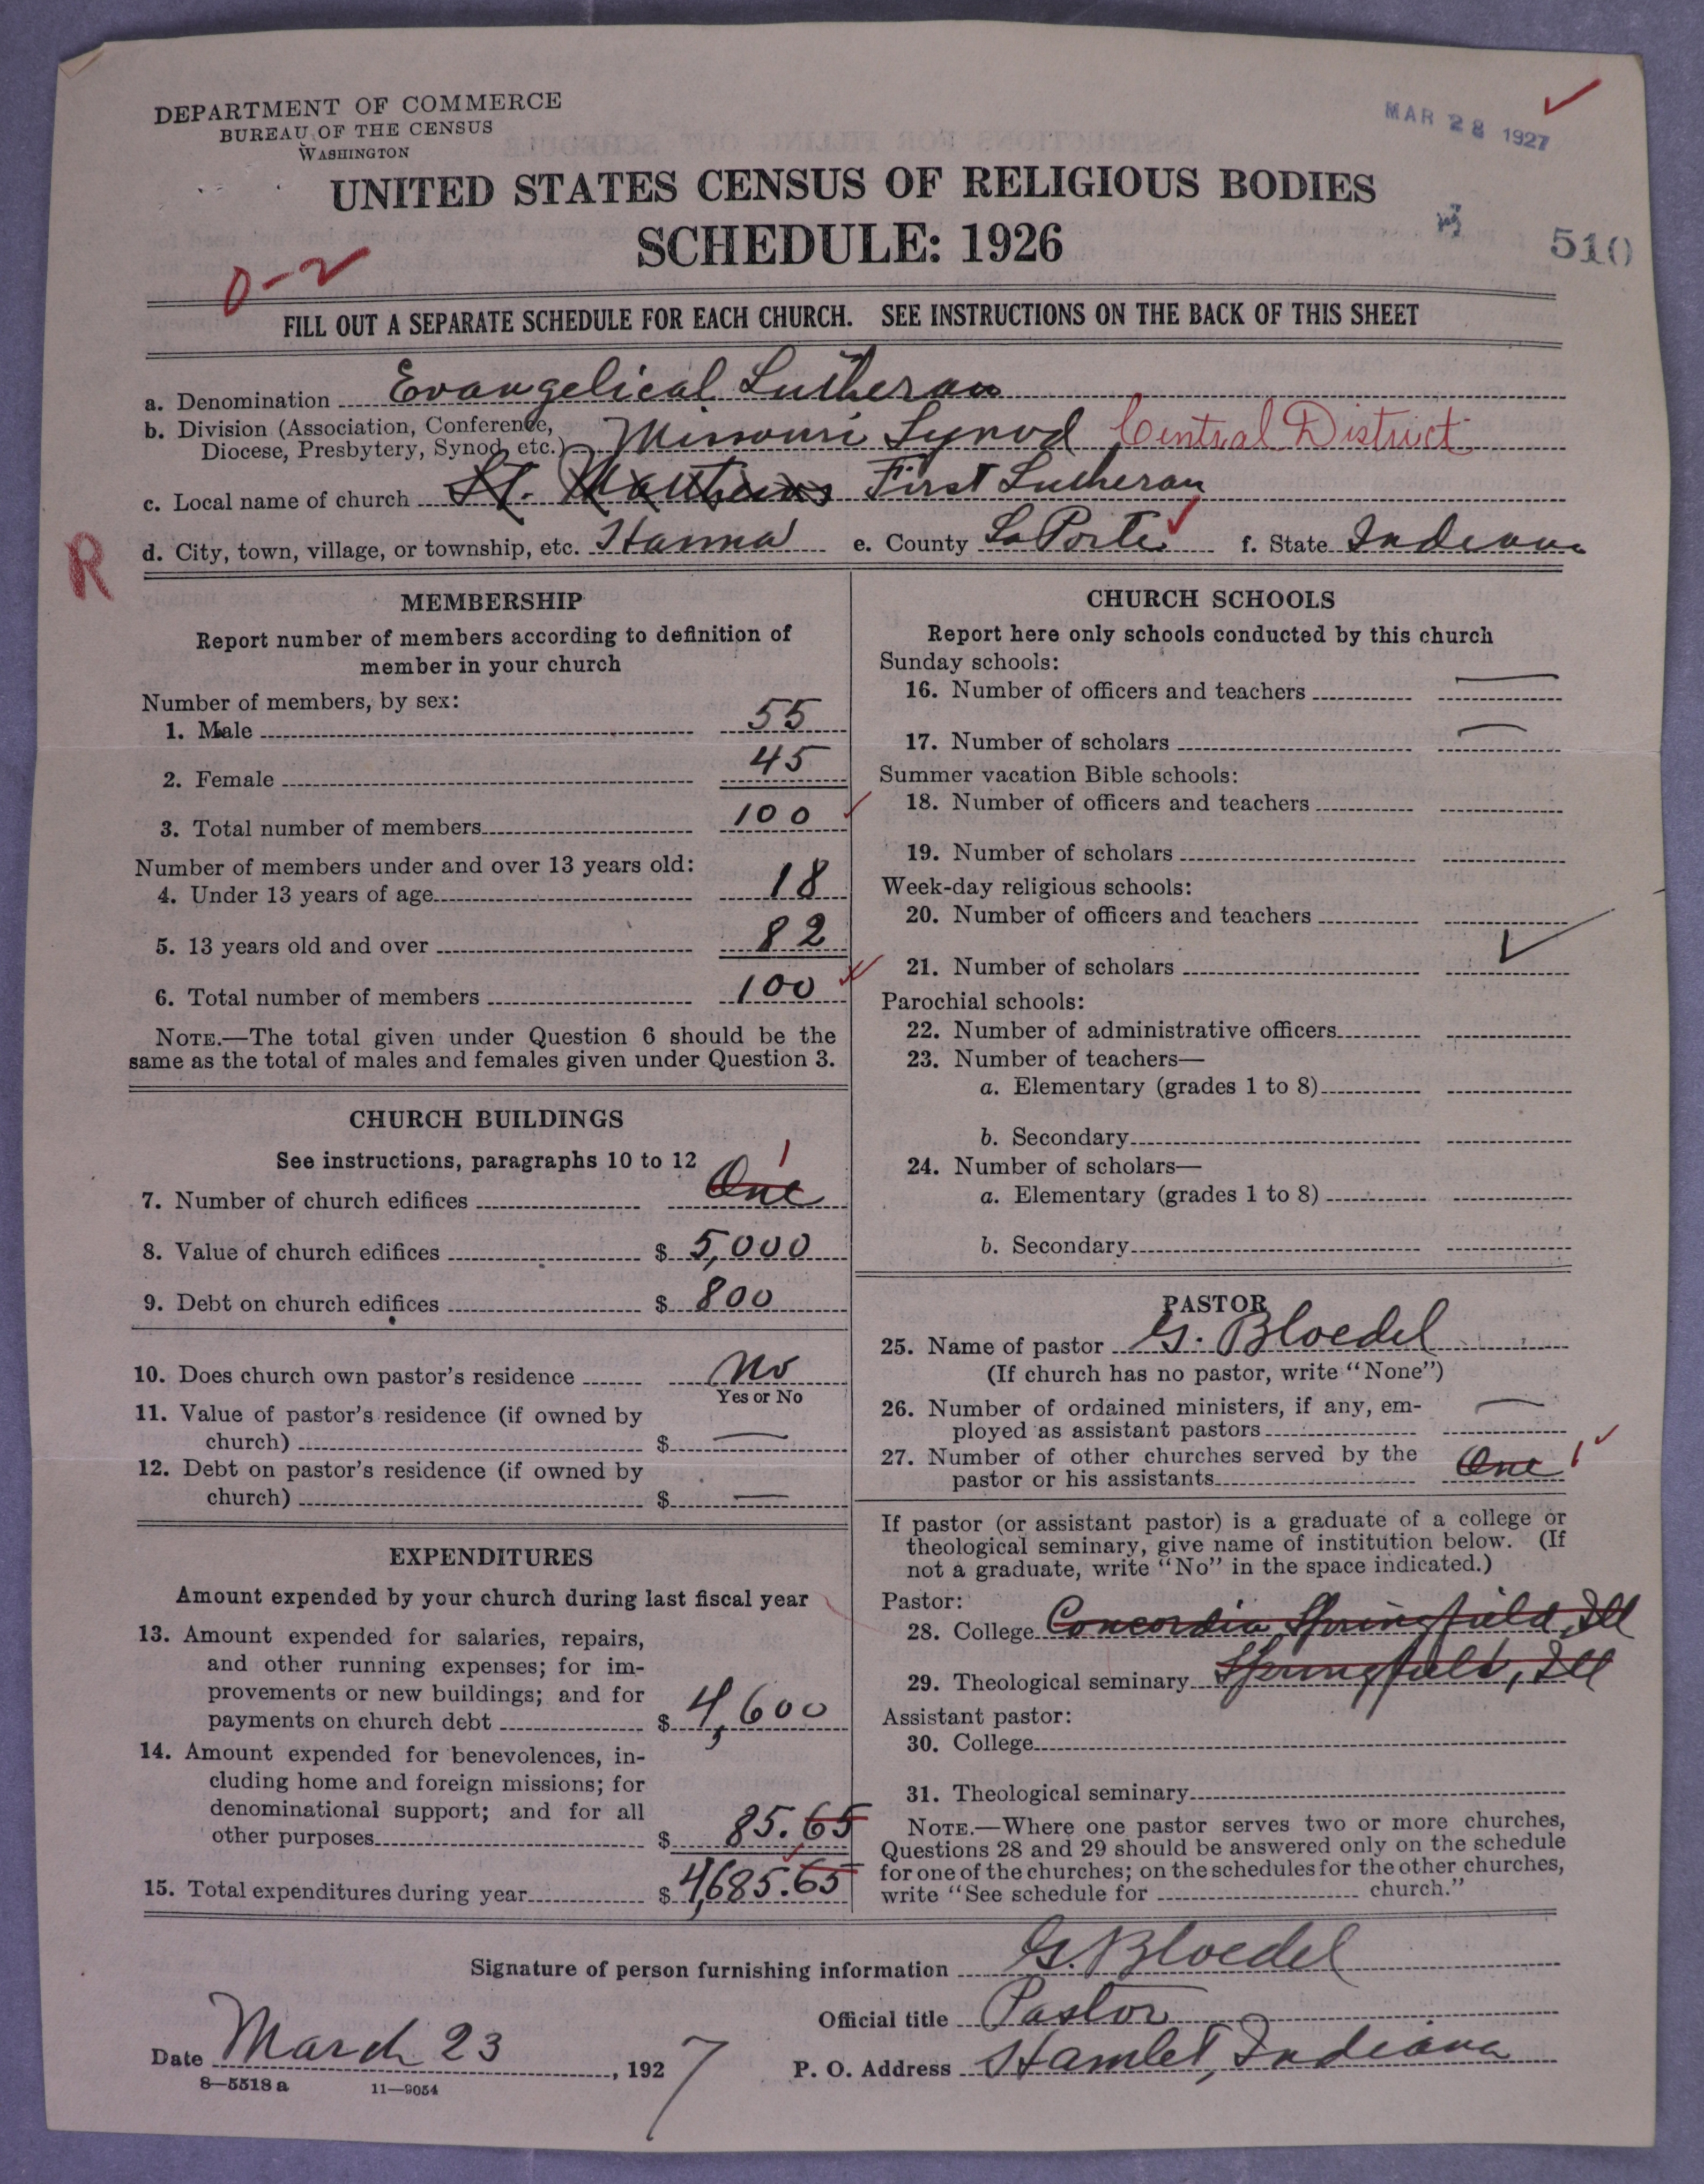 DEPARTMENT OF COMMERCE
BUREAU OF THE CENSUS
WASHINGTON
MAR 28 1927
UNITED STATES CENSUS OF RELIGIOUS BODIES
SCHEDULE: 1926
510
0-2
FILL OUT A SEPARATE SCHEDULE FOR EACH CHURCH. SEE INSTRUCTIONS ON THE BACK OF THIS SHEET
a. Denomination Evangelical Lutheran
b. Division (Association, Conference, Diocese, Presbytery, Synod, etc.) Missouri Synod Central District
c. Local name of church St. Matthews First Lutheran
R
d. City, town, village, or township, etc. Hanna e. County LaPorte f. State Indiana
MEMBERSHIP
Report number of members according to definition of
member in your church
Number of members, by sex:
1. Male 55
2. Female 45
3. Total number of members 100
Number of members under and over 13 years old:
4. Under 13 years of age 18
5. 13 years old and over 82
6. Total number of members 100
NOTE.—The total given under Question 6 should be the
same as the total of males and females given under Question 3.
CHURCH BUILDINGS
See instructions, paragraphs 10 to 12
7. Number of church edifices One 1
8. Value of church edifices $ 5,000
9. Debt on church edifices $ 800
10. Does church own pastor's residence No
Yes or No
11. Value of pastor's residence (if owned by
church) $ —
12. Debt on pastor's residence (if owned by
church) $ —
EXPENDITURES
Amount expended by your church during last fiscal year
13. Amount expended for salaries, repairs,
and other running expenses; for im-
provements or new buildings; and for
payments on church debt $ 4,600
14. Amount expended for benevolences, in-
cluding home and foreign missions; for
denominational support; and for all
other purposes $ 85.65
15. Total expenditures during year $ 4,685.65
CHURCH SCHOOLS
Report here only schools conducted by this church
Sunday schools:
16. Number of officers and teachers —
17. Number of scholars —
Summer vacation Bible schools:
18. Number of officers and teachers
19. Number of scholars
Week-day religious schools:
20. Number of officers and teachers
21. Number of scholars
Parochial schools:
22. Number of administrative officers
23. Number of teachers—
a. Elementary (grades 1 to 8)
b. Secondary
24. Number of scholars—
a. Elementary (grades 1 to 8)
b. Secondary
PASTOR
25. Name of pastor G. Bloedel
(If church has no pastor, write "None")
26. Number of ordained ministers, if any, em-
ployed as assistant pastors —
27. Number of other churches served by the
pastor or his assistants One 1
If pastor (or assistant pastor) is a graduate of a college or
theological seminary, give name of institution below. (If
not a graduate, write "No" in the space indicated.)
Pastor:
28. College Concordia Springfield, Ill
29. Theological seminary Springfield, Ill
Assistant pastor:
30. College
31. Theological seminary
NOTE.—Where one pastor serves two or more churches,
Questions 28 and 29 should be answered only on the schedule
for one of the churches; on the schedules for the other churches,
write "See schedule for church."
Signature of person furnishing information G. Bloedel
Official title Pastor
Date March 23, 1927 P. O. Address Hamlet, Indiana
8—5518a 11—9054